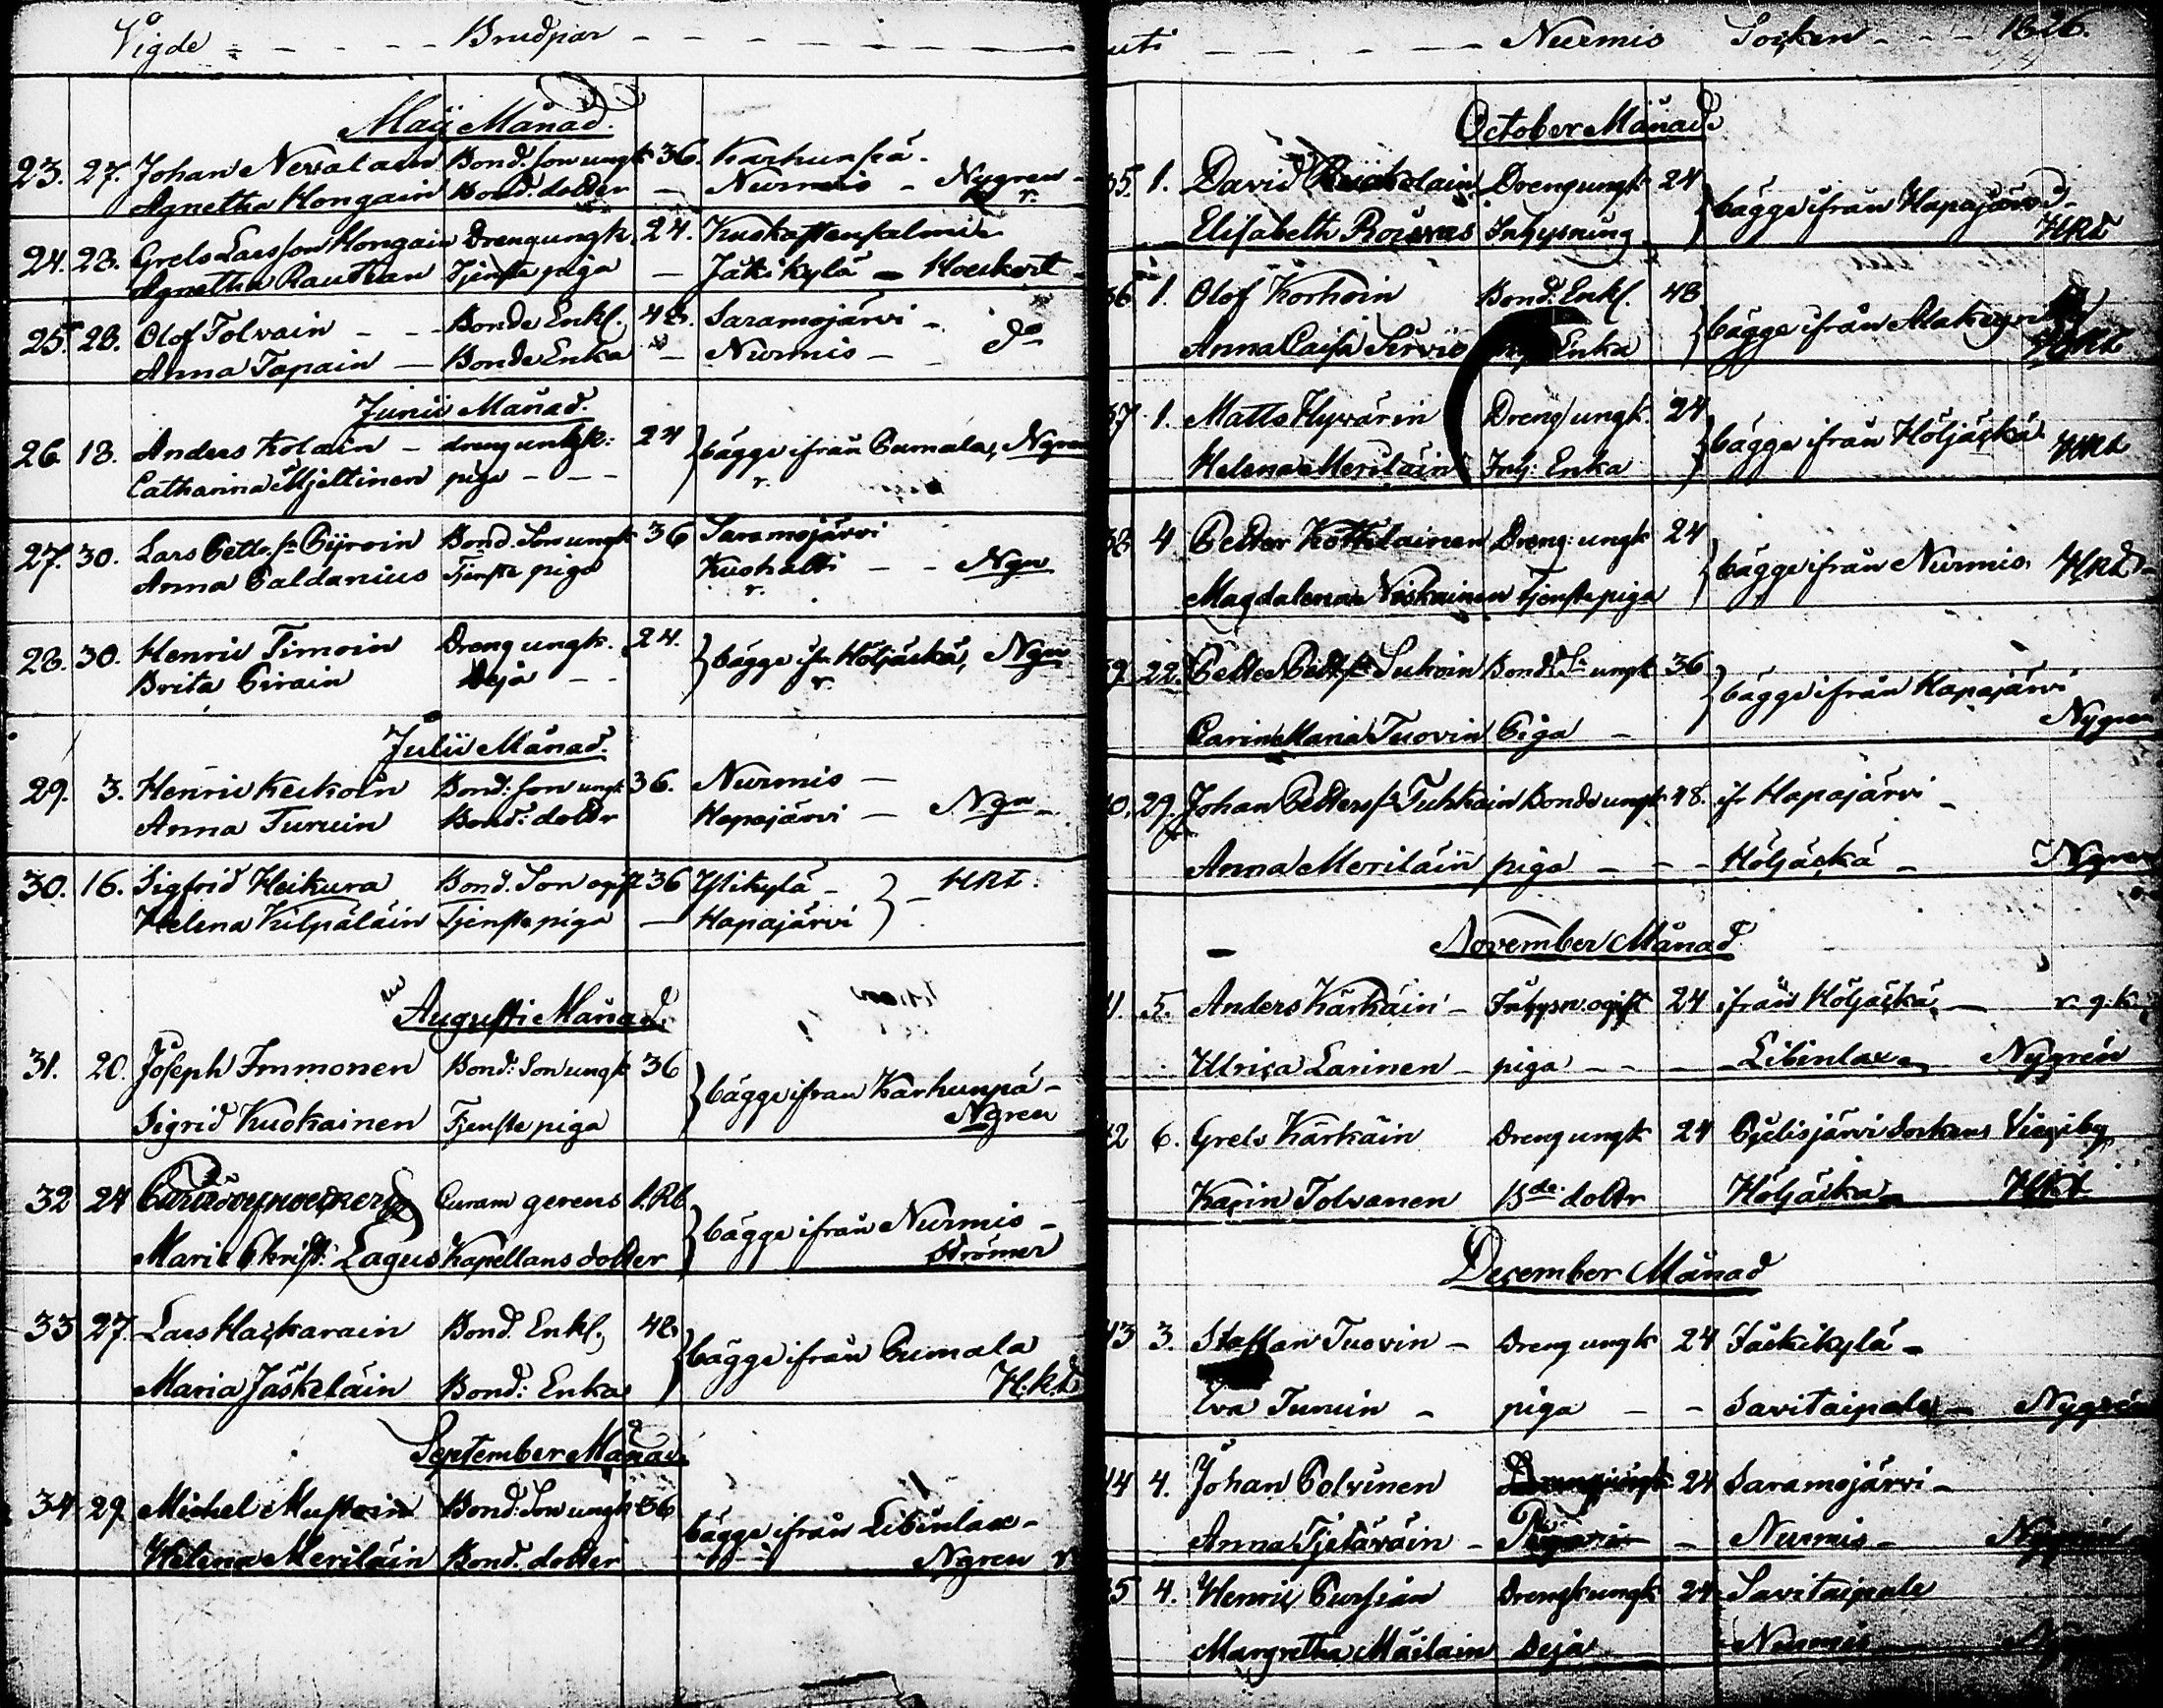 Vigde - - - - - Brudpar - - - - -
Maij Månad.
23. 27. Johan Nevalain Bond. son ungk 36. Karhunpä -
Agnetha Hongain Bond. dotter - Nurmis - Nygren -
r.
24. 28. Grels Larsson Hongain Dreng ungk. 24. Kuokastensalmi
Agnetha Rautian Tjenste piga - Jäkikylä - Hoeckert -
25. 28. Olof Tolvain - - Bonde Enkl. 48. Saramojärvi -
Anna Tapain - Bonde Enka - Nurmis - do
Junii Månad.
26. 18. Anders Kolain - dreng ungk: 24 } bägge ifrån Pumala, Ngren
Catharina Mjeltinen piga - - - r.
27. 30. Lars Petters. Pijroin Bond. Son ungk 36 Saramojärvi
Anna Paldanius Tjenste piga Kuohatti - - Ngn
r.
28. 30. Henric Timoin Dreng ungk. 24. } bägge ifr Höljäskä, Ngn
Brita Pirain Deja - - r.
Julii Månad.
29. 3. Henric Keikoin Bond: son ungk 36. Nurmis -
Anna Turuin Bond: dottr Hapajärvi - Ngn -
30. 16. Sigfrid Heikura Bond. Son ogift 36 Ylikylä - } - HKt.
Helena Kilpäläin Tjenste piga - Hapajärvi
Augusti Månad.
31. 20. Joseph Immonen Bond: Son ungk 36 } bägge ifrån Karhunpä -
Sigrid Kuokainen Tjenste piga Ngren
32 24 Curam gerens 1.Rb. } bägge ifrån Nurmis -
Maria Christ: Lagus Kapellans dotter Strömer
33 27. Lars Haskarain Bond. Enkl. 48 } bägge ifrån Pumala
Maria Jäskeläin Bond: Enka H:k.t
September Månad.
34 29. Michel Mustoin Bond: Son ungk 36 bägge ifrån Libinlax -
Helena Meriläin Bond. dotter Ngren r
uti - - - - - Nurmis Socken - - - 1826.
October Månad.
35. 1. David Dreng ungk 24 } bägge ifrån Hapajärvi -
Elisabeth Inhysning HKt
36 1. Olof Korhoin Bond: Enkl. 48 } bägge ifrån
Anna Caisa Servio Enka HKt
37 1. Matts Hyvärin Dreng ungk. 24 } bägge ifrån Höljäskä
Helena Meriläin Inh: Enka HKt
38 4 Petter Kottilainen Dreng: ungk 24 } bägge ifrån Nurmis HKt -
Magdalena Niskainen Tjenste piga
9. 22. Petter Petters. Sukoin Bond. Sn ungk 36 } bägge ifrån Hapajärvi
Carin Maria Tuovin Piga - Nygren
0. 29. Johan Petters. Tuhkain Bonde ungk 48. ifr Hapajärvi -
Anna Meriläin piga - - - Höljäskä - Ngren
November Månad
1. 5. Anders Kärkäin - Inhysn. ogift 24 ifrån Höljäskä - r. g. k.
Ulrica Larinen - piga - - - Libinlax - Nygrén
42 6. Grels Kärkäin Dreng ungk 24 Pjelisjärvi Sockens Viexiby
Karin Tolvanen Bde. dottr Höljäskä HKt
December Månad
43 3. Staffan Tuovin - Dreng ungk 24 Jäskikylä -
Eva Turuin - piga - - Savitaipale - Nygrén
44 4. Johan Polvinen Dreng ungk 24 Saramojärvi -
Anna Tjetäväin - Piga - Nurmis - Nygrén
5 4. Henric Pursian Dreng ungk 24 Savitaipale
Margretha Mäilain Deja Nurmis